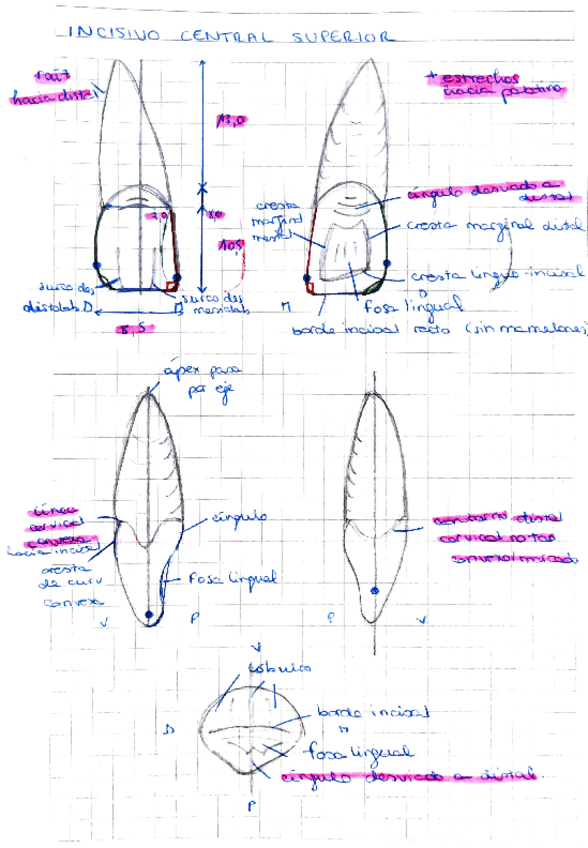 INCISIVO CENTRAL SUPERIOR
raíz
hacia distal
13,0
2,0
10,5
surco des
distolab D
surco des
mesiolab
8,5
+ estrechos
hacia palatino
cíngulo desviado a
distal
cresta
marginal
mesial
cresta marginal distal
cresta linguo-incisal
D
M
fosa lingual
borde incisal recto (sin mamelones)
ápex pasa
por eje
línea
cervical
convexa
hacia incisal
cresta
de curv
convexa
cíngulo
Fosa lingual
V
P
contorno distal
cervical no tan
convexo/marcado
P
V
V
lóbulos
D
borde incisal
M
fosa lingual
cíngulo desviado a distal
P